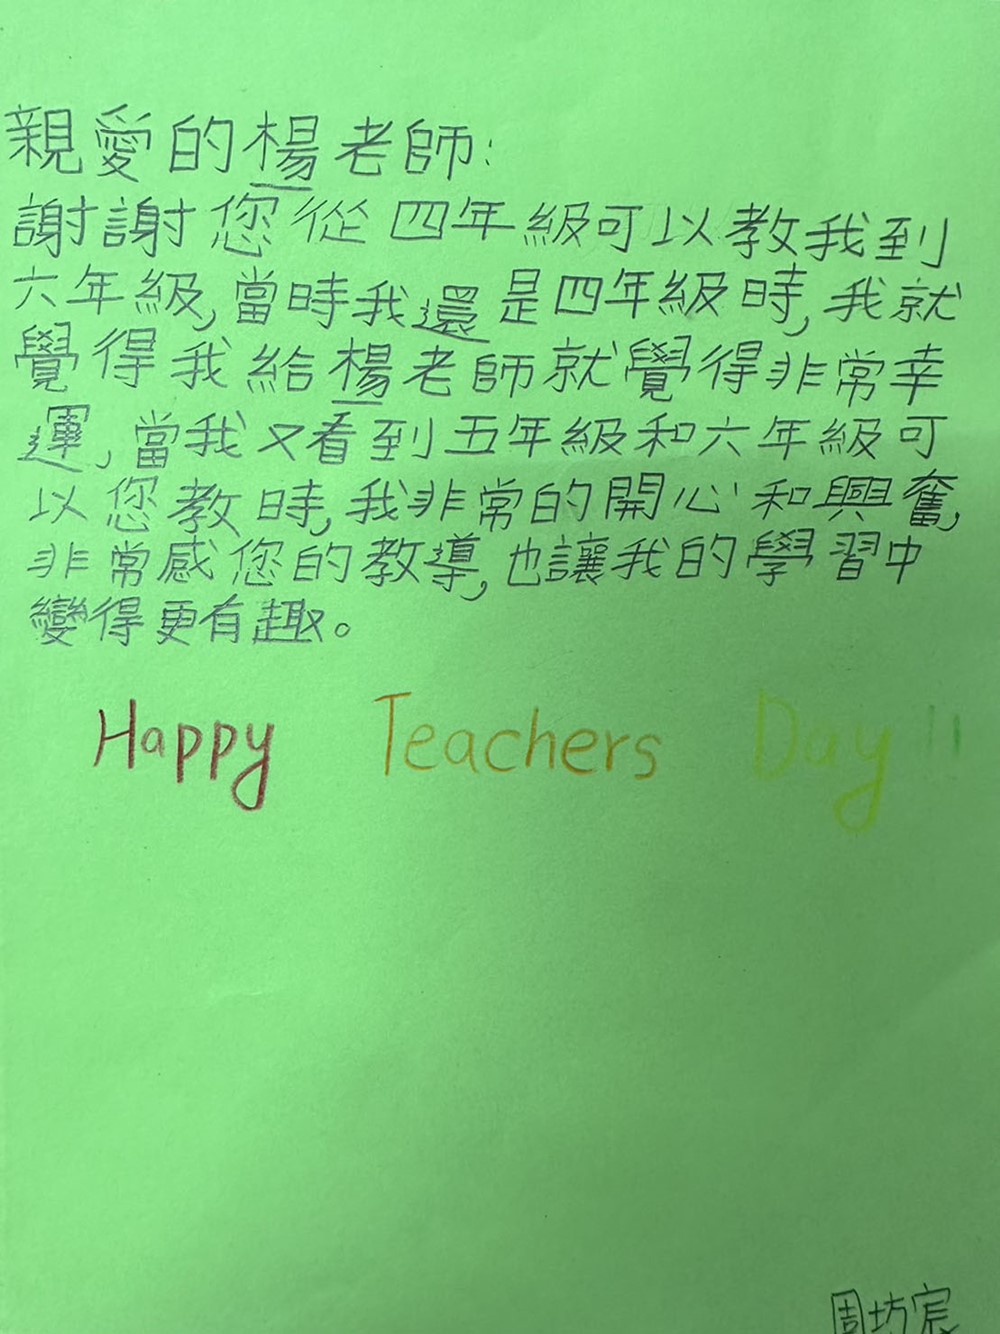 親愛的楊老師:
謝謝您從四年級可以教我到
六年級,當時我還是四年級時,我就
覺得我給楊老師就覺得非常幸
運,當我又看到五年級和六年級可
以您教時,我非常的開心和興奮,
非常感您的教導,也讓我的學習中
變得更有趣。
Happy Teachers Day!!
周坊宸